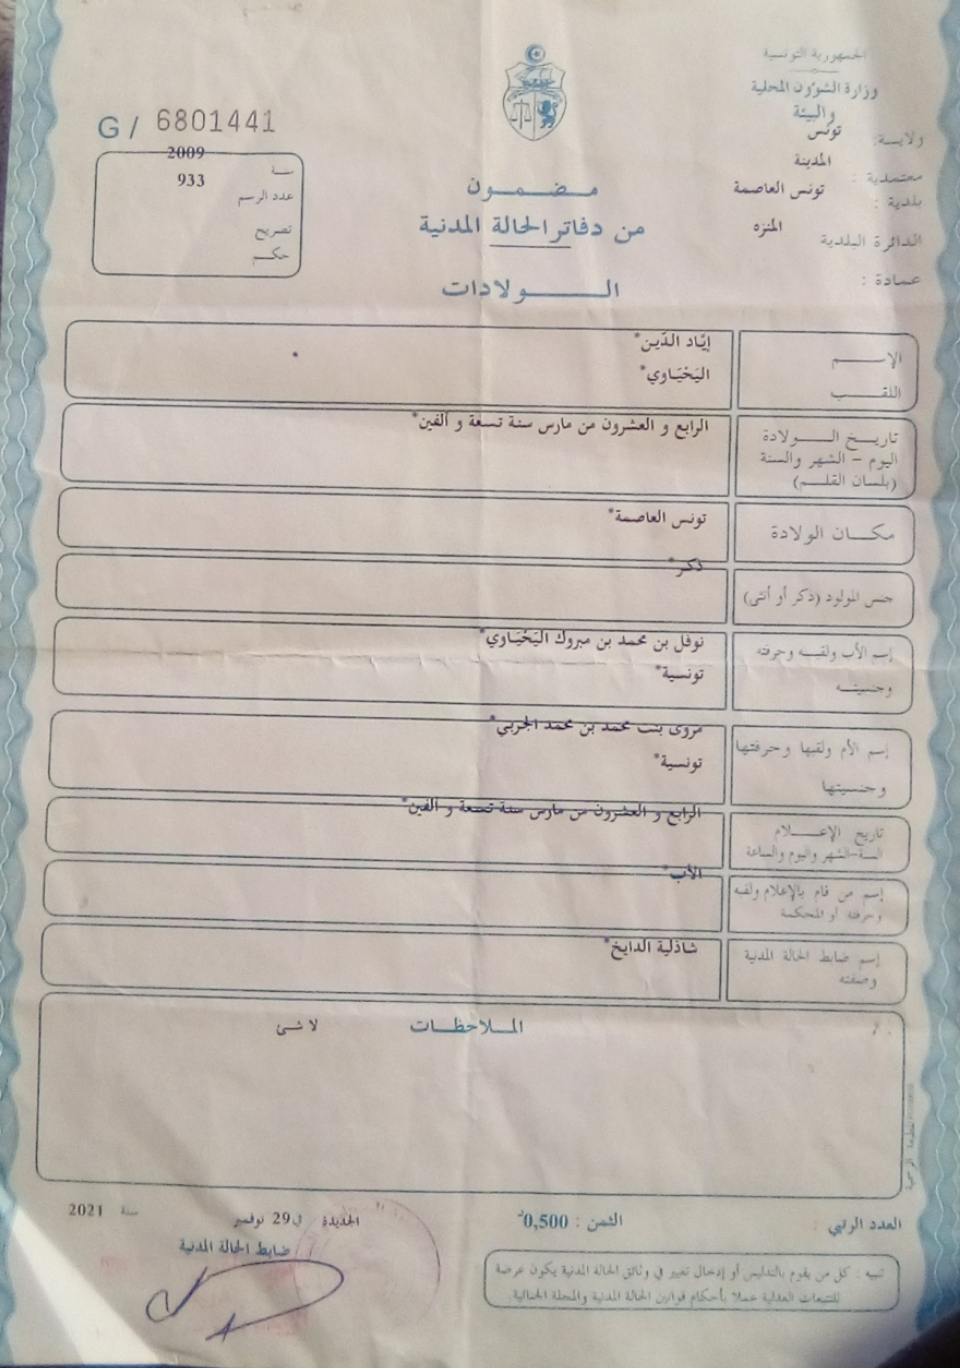 الجمهورية التونسية
وزارة الشؤون المحلية
والبيئة
ولاية: تونس
معتمدية: المدينة
بلدية: تونس العاصمة
الدائرة البلدية المنزه
عمادة:
G / 6801441
سنة 2009
عدد الرسم 933
تصريح
حكم
مضمون
من دفاتر الحالة المدنية
الولادات
الإسم إيّاد الدّين*
اللقب اليَحْيَاوي*
تاريخ الولادة الرابع و العشرون من مارس سنة تسعة و الفين*
اليوم - الشهر والسنة
(بلسان القلم)
مكان الولادة تونس العاصمة*
جنس المولود (ذكر أو أنثى) ذكر*
إسم الأب ولقبه وحرفته نوفل بن محمد بن مبروك اليَحْيَاوي*
وجنسيته تونسية*
إسم الأم ولقبها وحرفتها مروى بنت محمد بن محمد الجربي*
وجنسيتها تونسية*
تاريخ الإعلام الرابع و العشرون من مارس سنة تسعة و الفين*
السنة-الشهر واليوم والساعة
إسم من قام بالإعلام ولقبه الأب*
وحرفته أو المحكمة
إسم ضابط الحالة المدنية شاذلية الدايخ*
وصفته
الملاحظات لا شئ
العدد الرتبي : الثمن : 0,500د
الجديدة في 29 نوفمبر سنة 2021
ضابط الحالة المدنية
تنبيه : كل من يقوم بالتدليس أو إدخال تغيير في وثائق الحالة المدنية يكون عرضة
للتتبعات العدلية عملا بأحكام قوانين الحالة المدنية والمجلة الجنائية.